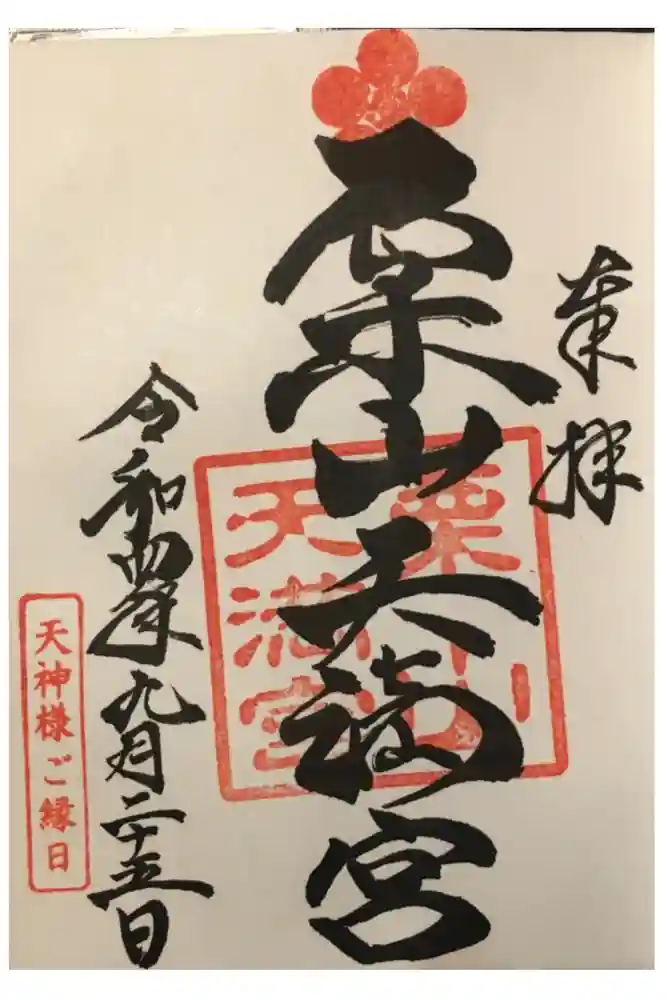 奉拝
栗山天満宮
栗山
天満宮
令和四年九月二十五日
天神様ご縁日